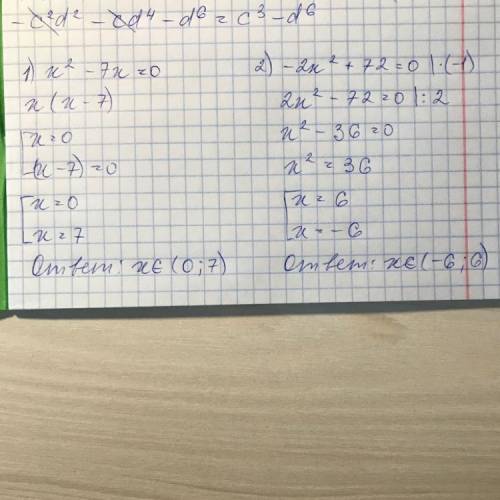 -c²d² - cd⁴ - d⁶ = c³ - d⁶
1) x² - 7x = 0
x (x - 7)
[x = 0
-(x - 7) = 0
[x = 0
[x = 7
Ответ: x ∈ (0; 7)
2) -2x² + 72 = 0 |:(-1)
2x² - 72 = 0 |: 2
x² - 36 = 0
x² = 36
[x = 6
[x = -6
Ответ: x ∈ (-6; 6)